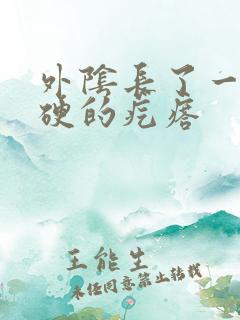 外陰長了一
硬的疙瘩
王能生
未经同意禁止转载